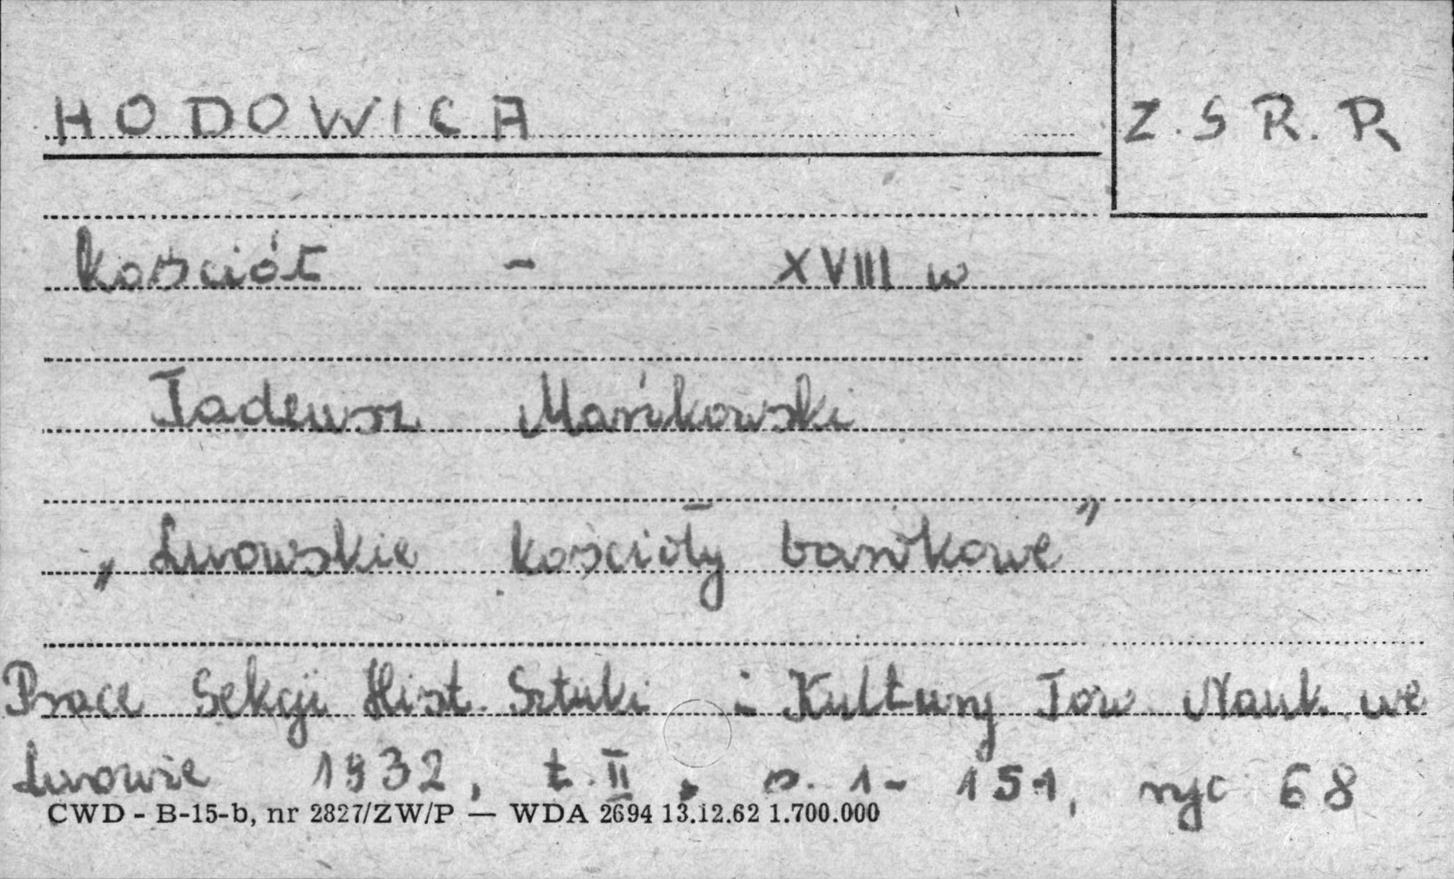 HODOWICA
Z.S.R.R
kościół - XVIII w
Tadeusz Mańkowski
„Lwowskie kościoły barokowe”
Prace Sekcji Hist. Sztuki i Kultury Tow Nauk. we
Lwowie 1932, t.II, s. 1-151, ryc 68
CWD - B-15-b, nr 2827/ZW/P — WDA 2694 13.12.62 1.700.000